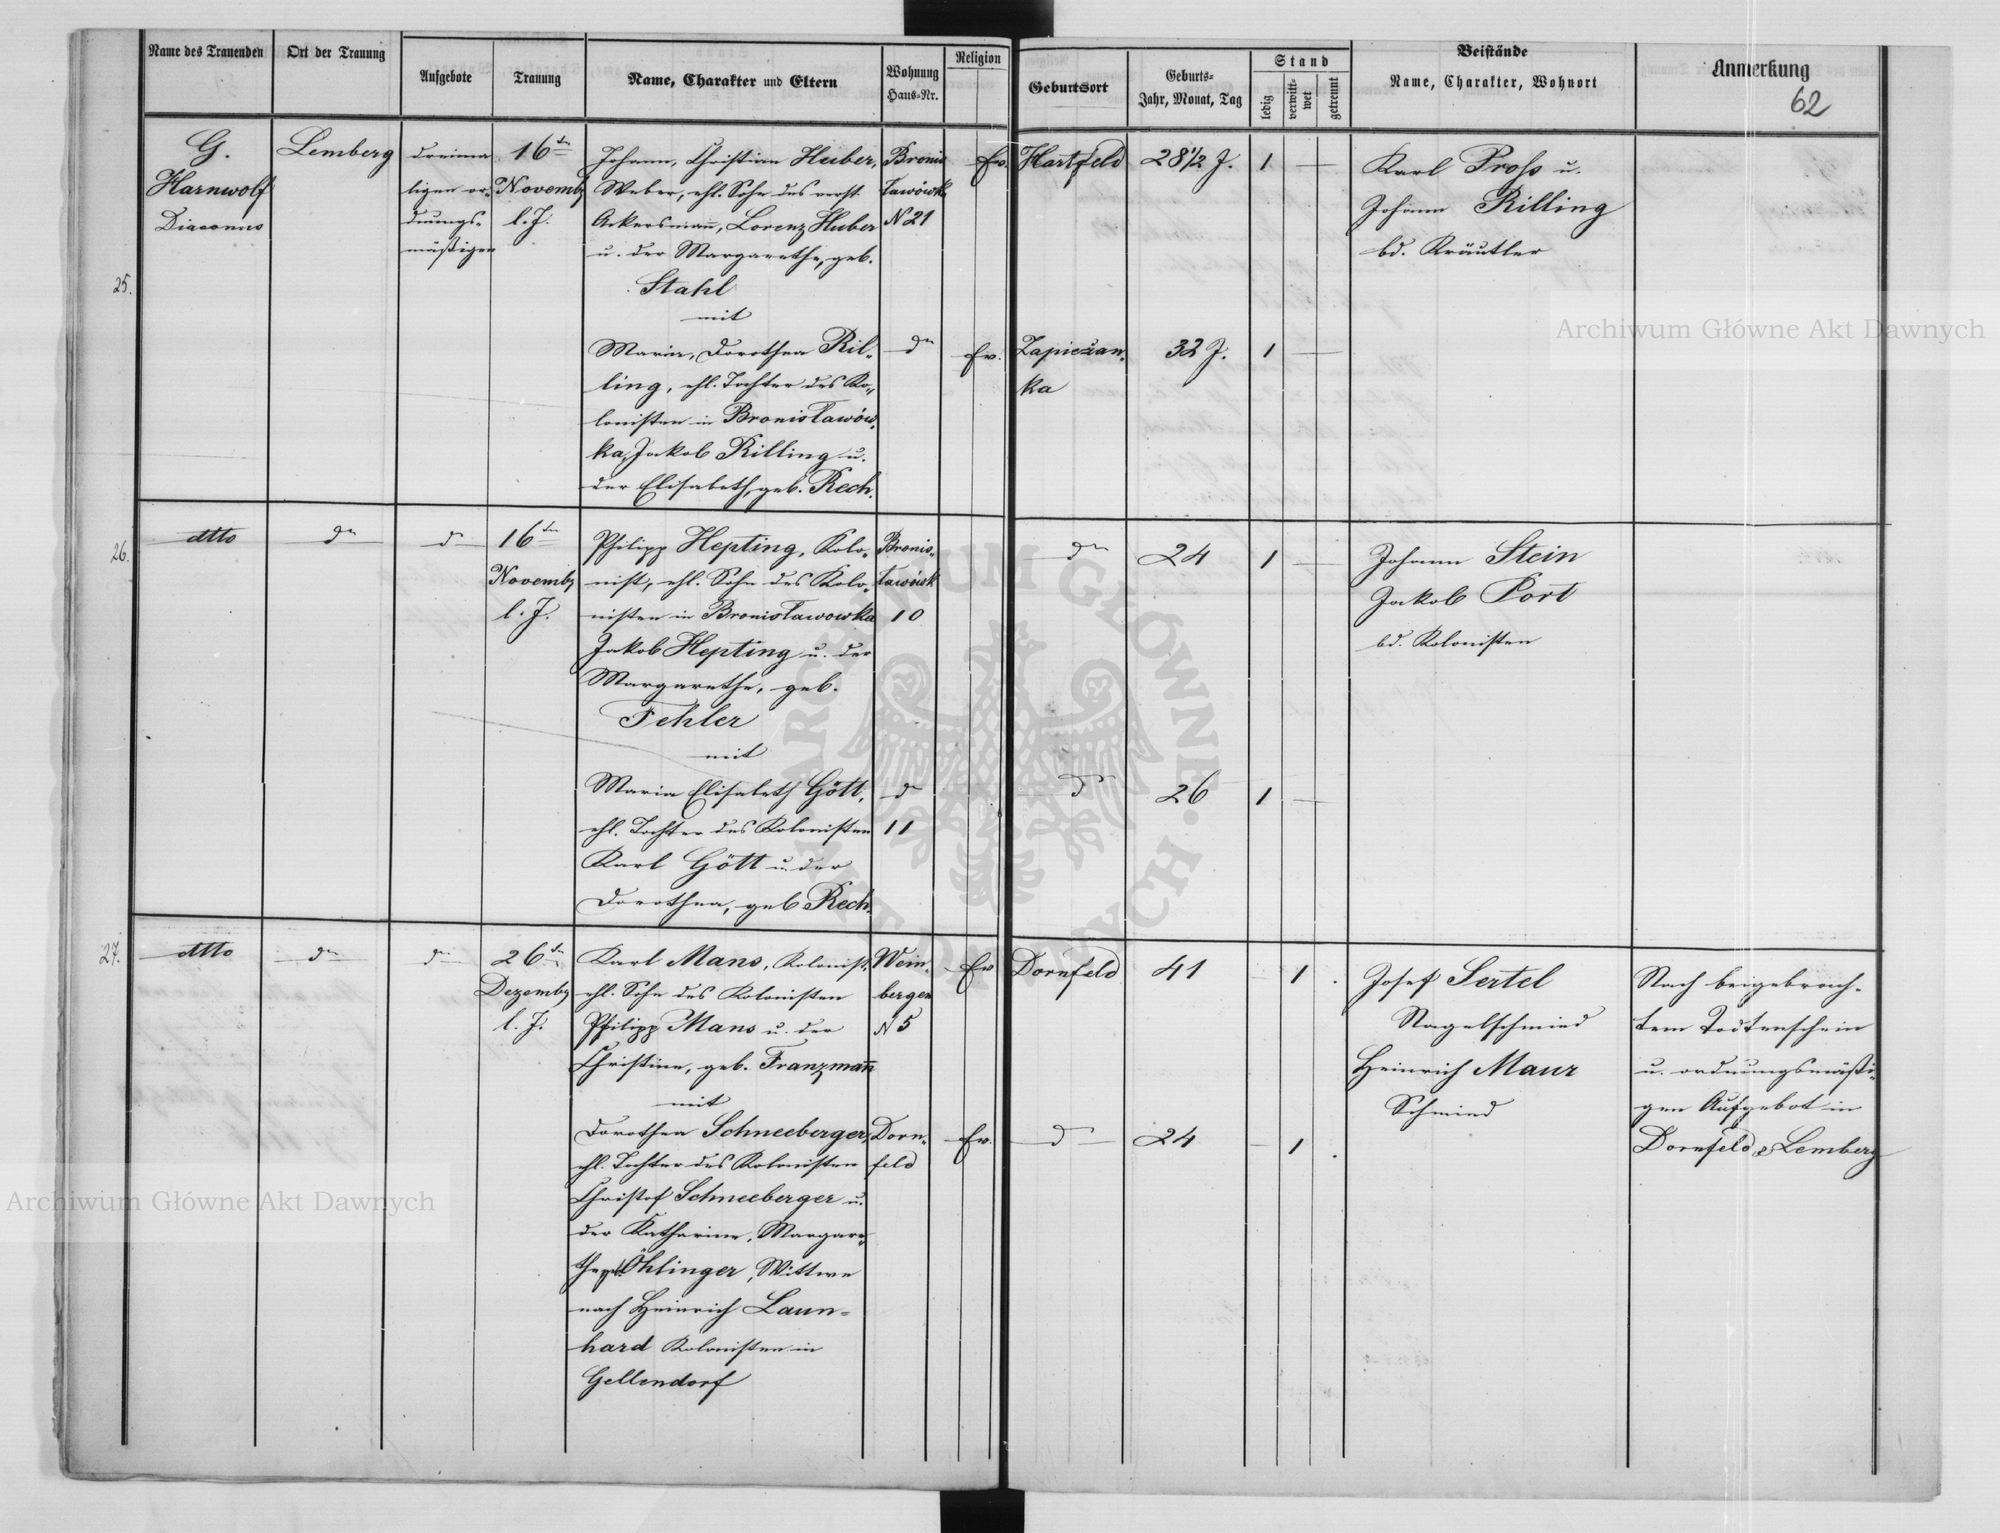 Name des Trauenden
Ort der Trauung
Aufgebote
Trauung
Name, Charakter und Eltern
Wohnung
Haus-Nr.
Religion
Geburtsort
Geburts-
Jahr, Monat, Tag
Stand
ledig
verwitt-
wet
getrennt
Beistände
Name, Charakter, Wohnort
Anmerkung
62
25.
G.
Harnwolf
Diaconus
Lemberg
dreima
ligen or-
dnungs-
mäßigen
16ten
Novemb
l. J.
Johann, Christian Huber,
Weber, ehl. Sohn des verst.
Ackersmañ, Lorenz Huber
u. der Margarethe, geb.
Stahl
mit
Maria, Dorothea Ril-
ling, ehl. Tochter des Ko-
lonisten in Bronisławów-
ka, Jakob Rilling u.
der Elisabeth, geb. Rech.
Bronis
ławówk
N 21
dto
Ev.
Ev.
Hartfeld
Zapiezan-
ka
28 1/2 J.
32 J.
1
1
Karl Pross u.
Johann Rilling
bd. Kräutler
26.
dtto
dto
dto
16ten
Novemb
l. J.
Philipp Hepting, Kolo-
nist, ehl. Sohn des Kolo-
nisten in Bronisławowka
Jakob Hepting u. der
Margarethe, geb.
Fehler
mit
Maria Elisabeth Gött,
ehl. Tochter des Kolonisten
Karl Gött u. der
Dorothea, geb Rech.
Bronis-
ławówk
10
dto
11
dto
dto
24
26
1
1
Johann Stein
Jakob Port
bd. Kolonisten
27.
dtto
dto
dto
26ten
Dezemb
l. J.
Karl Mans, Kolonist,
ehl. Sohn des Kolonisten
Philipp Mans u. der
Christine, geb. Franzmañ
mit
Dorothea Schneeberger,
ehl. Tochter des Kolonisten
Christof Schneeberger u.
der Katharine, Margare-
the geb. Öhlinger, Wittwe
nach Heinrich Laun-
hard Kolonisten in
Gellendorf
Wein-
bergen
N 5
Dorn-
feld
Ev
Ev.
Dornfeld
dto
41
24
1
1
Josef Sertel
Nagelschmied
Heinrich Maur
Schmied
Nach beigebrach-
tem Todtenschein
u. ordnungsmäßi-
gen Aufgebot in
Dornfeld & Lemberg
Archiwum Główne Akt Dawnych
Archiwum Główne Akt Dawnych
ARCHIWUM GŁÓWNE AKT DAWNYCH